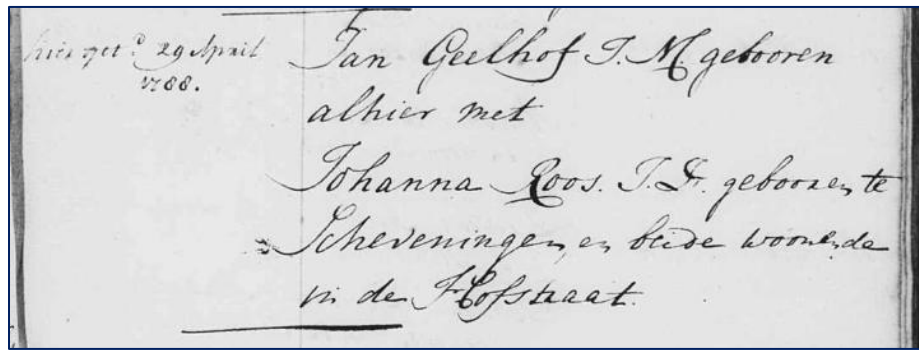 hier get.d 29 April
1788.
Jan Geelhof J. M. gebooren
alhier met
Johanna Roos. J. D. gebooren te
Scheveningen, en beide woonende
in de Hofstraat.